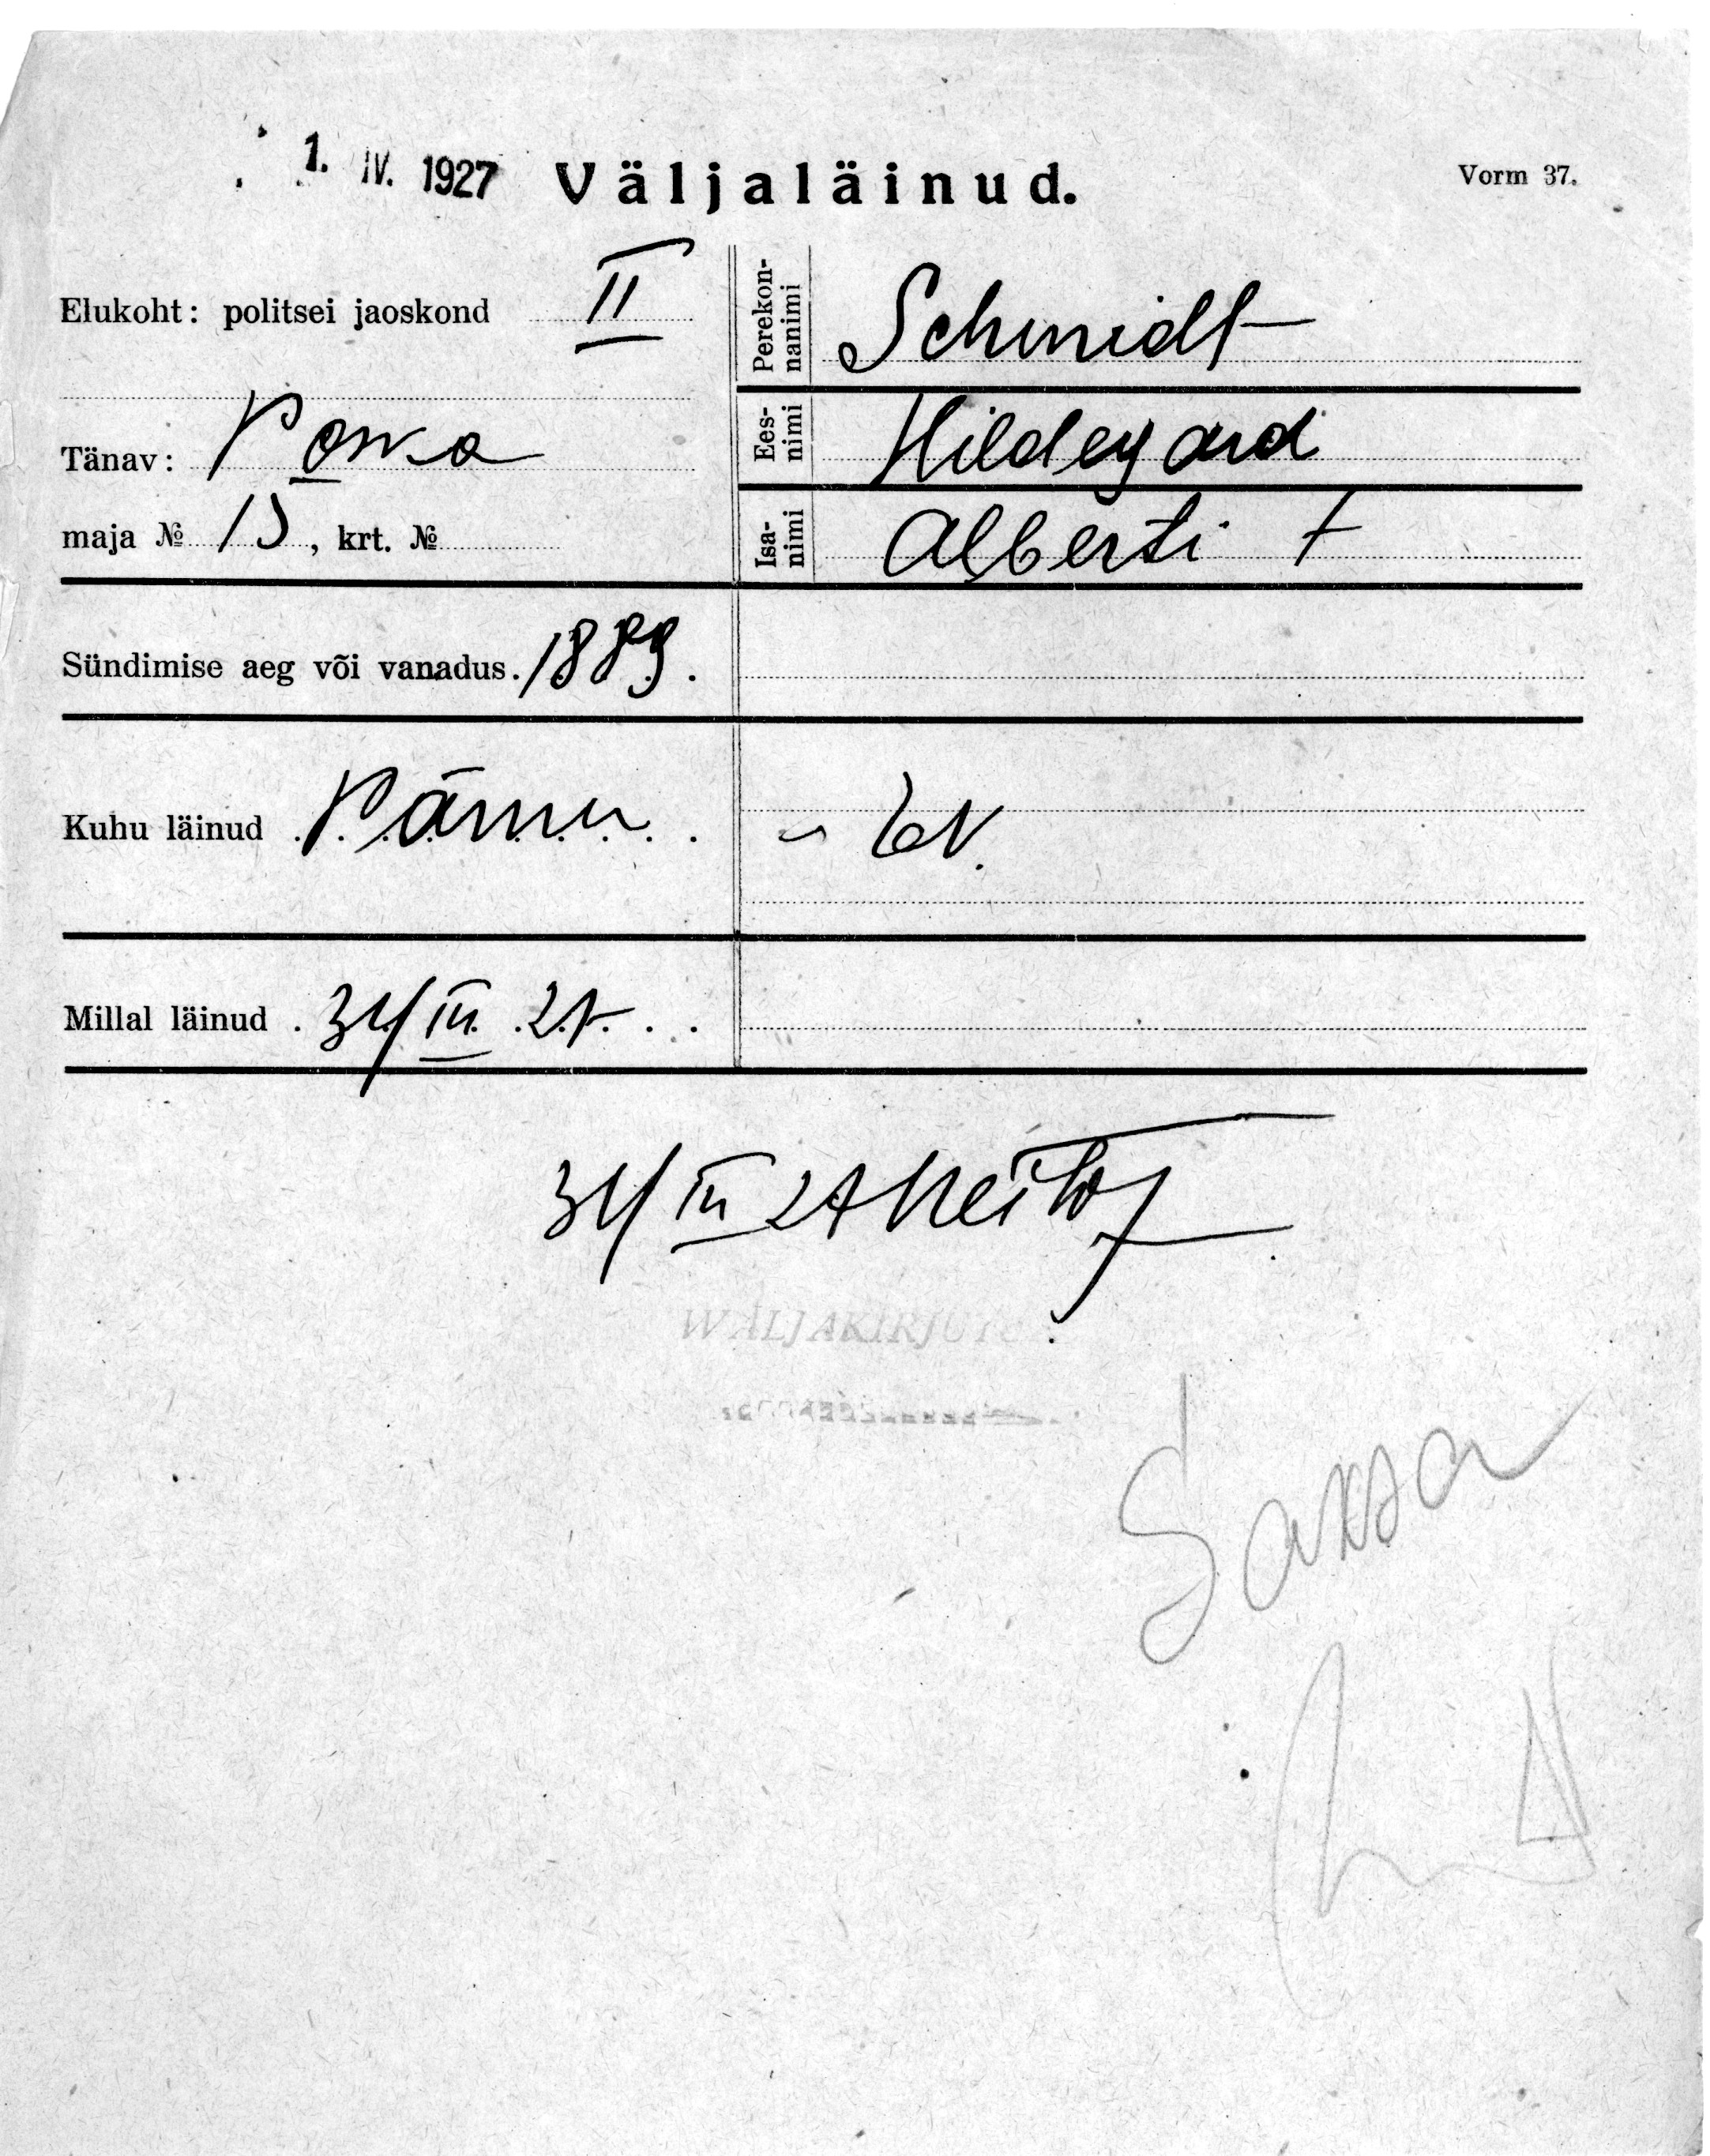 1. IV. 1927 Väljaläinud. Vorm 37.
Elukoht: politsei jaoskond II
Tänav: Poska
maja № 15, krt. №
Perekon-
nanimi Schmidt
Ees-
nimi Hildegard
Isa-
nimi Alberti t
Sündimise aeg või vanadus. 1889.
Kuhu läinud Pärnu
Millal läinud 31/III 27.
31/III 27
WÄLJAKIRJUT
Saksa